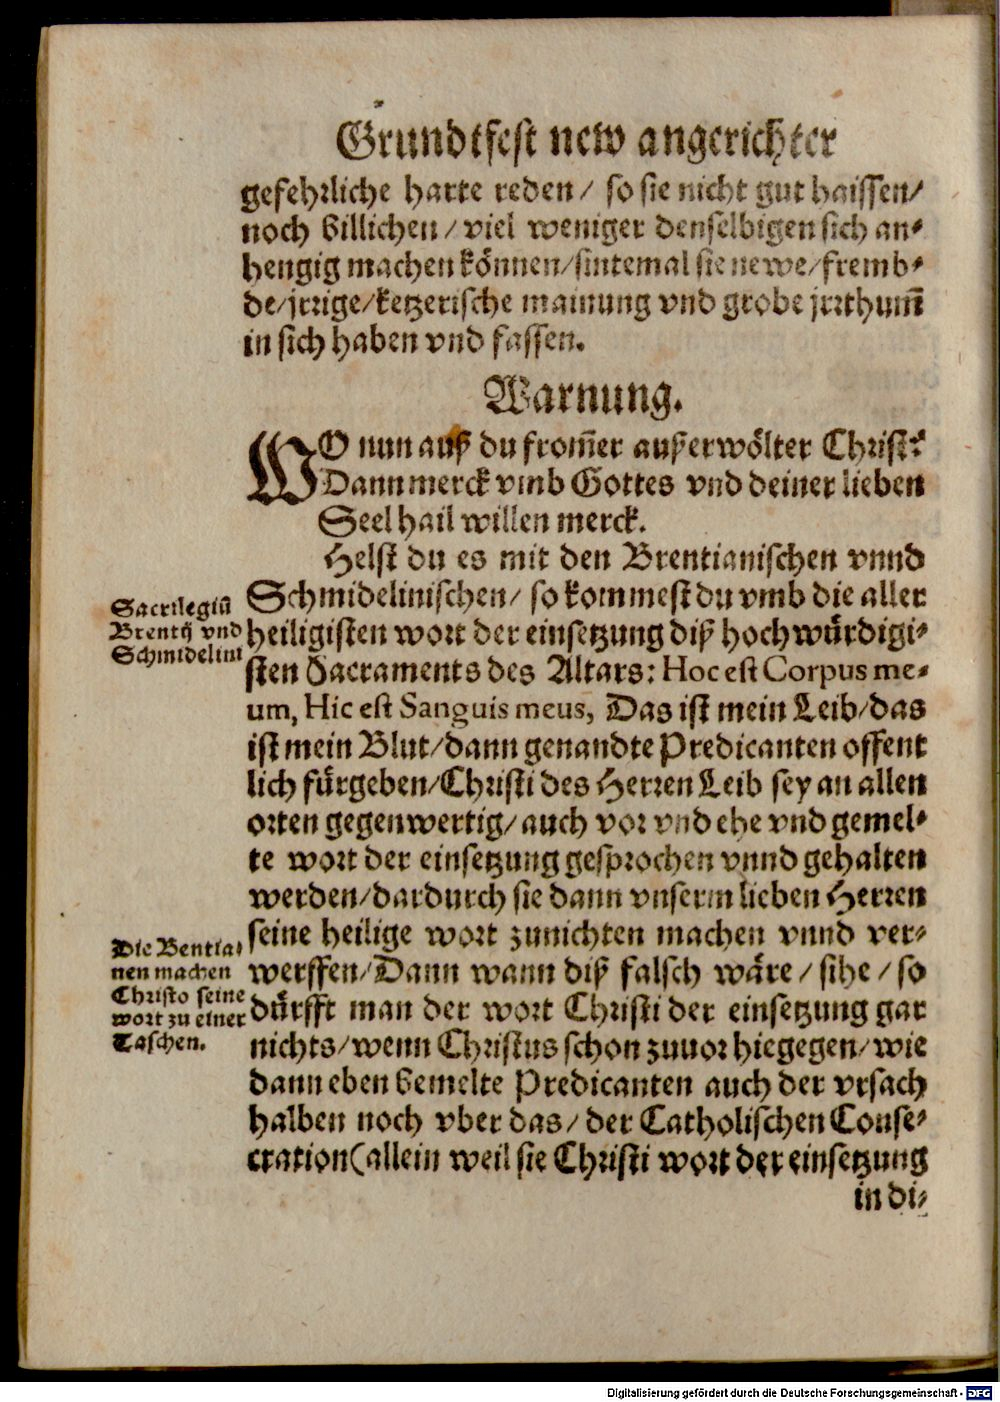 Grundtfest new angerichter
gefehrliche harte reden/ so sie nicht gut haissen/
noch billichen/ viel weniger denselbigen sich an⸗
hengig machen können/ sintemal sie newe/ fremb⸗
de/ jrrige/ ketzerische mainung vnd grobe jrrthum̃
in sich haben vnd fassen.
Warnung.
WO nun auß du from̃er außerwölter Christ?
Dann merck vmb Gottes vnd deiner lieben
Seel hail willen merck.
Helst du es mit den Brentianischen vnnd
Sacrilegiũ
Brentij vnd
Schmidelini
Schmidelinischen/ so kommest du vmb die aller
heiligisten wort der einsetzung diß hochwürdigi⸗
sten Sacraments des Altars: Hoc est Corpus me⸗
um, Hic est Sanguis meus, Das ist mein Leib/ das
ist mein Blut/ dann genandte Predicanten offent
lich fürgeben/ Christi des Herren Leib sey an allen
orten gegenwertig/ auch vor vnd ehe vnd gemel⸗
te wort der einsetzung gesprochen vnnd gehalten
werden/ dardurch sie dann vnserm lieben Herren
seine heilige wort zunichten machen vnnd ver⸗
Die Bentia⸗
nen machen
Christo seine
wort zu einer
Taschen.
werffen/ Dann wann diß falsch wäre/ sihe/ so
dürfft man der wort Christi der einsetzung gar
nichts/ wenn Christus schon zuuor hiegegen/ wie
dann eben bemelte Predicanten auch der vrsach
halben noch vber das/ der Catholischen Conse⸗
cration (allein weil sie Christi wort der einsetzung
in di⸗
Digitalisierung gefördert durch die Deutsche Forschungsgemeinschaft - DFG